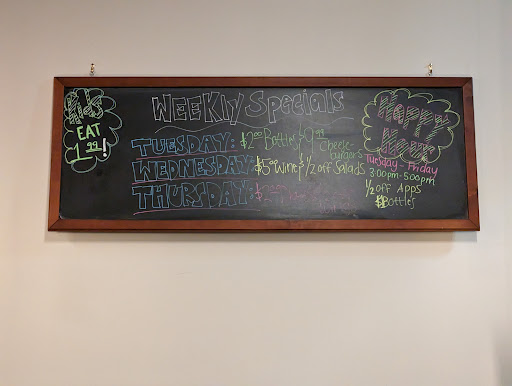 Kids
EAT
1.99!
WEEKLY Specials
TUESDAY: $2.00 Bottles
Cheese-
burgers
WEDNESDAY: $5.00 Wine & 1/2 off Salads
THURSDAY:
HAPPY
Hour
Tuesday - Friday
3:00pm-5:00pm
1/2 off Apps
Bottles